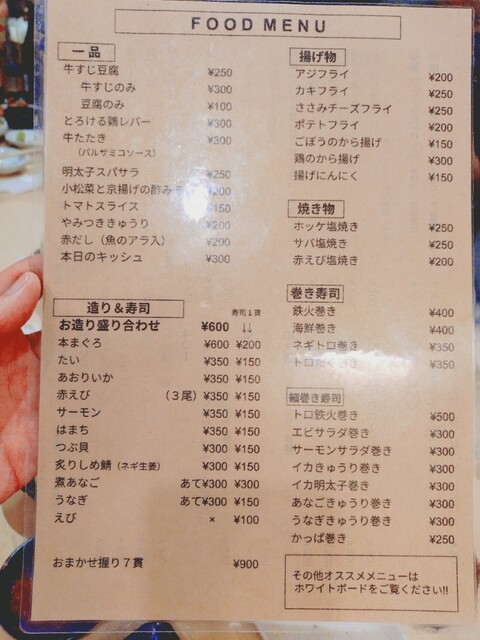 FOOD MENU
一品
牛すじ豆腐 ¥250
牛すじのみ ¥300
豆腐のみ ¥100
とろける鶏レバー ¥300
牛たたき ¥300
(バルサミコソース)
明太子スパサラ ¥250
小松菜と京揚げの酢み ¥200
トマトスライス ¥150
やみつききゅうり ¥200
赤だし(魚のアラ入) ¥200
本日のキッシュ ¥300
造り&寿司
寿司1貫
お造り盛り合わせ ¥600 ↓↓
本まぐろ ¥600 ¥200
たい ¥350 ¥150
あおりいか ¥350 ¥150
赤えび (3尾)¥350 ¥150
サーモン ¥350 ¥150
はまち ¥350 ¥150
つぶ貝 ¥300 ¥150
炙りしめ鯖(ネギ生姜) ¥300 ¥150
煮あなご あて¥300 ¥300
うなぎ あて¥300 ¥150
えび × ¥100
おまかせ握り7貫 ¥900
揚げ物
アジフライ ¥200
カキフライ ¥250
ささみチーズフライ ¥250
ポテトフライ ¥200
ごぼうのから揚げ ¥150
鶏のから揚げ ¥300
揚げにんにく ¥150
焼き物
ホッケ塩焼き ¥250
サバ塩焼き ¥250
赤えび塩焼き ¥200
巻き寿司
鉄火巻き ¥400
海鮮巻き ¥400
ネギトロ巻き ¥350
トロたく巻き ¥350
細巻き寿司
トロ鉄火巻き ¥500
エビサラダ巻き ¥300
サーモンサラダ巻き ¥300
イカきゅうり巻き ¥300
イカ明太子巻き ¥300
あなごきゅうり巻き ¥300
うなぎきゅうり巻き ¥300
かっぱ巻き ¥250
その他オススメメニューは
ホワイトボードをご覧ください!!